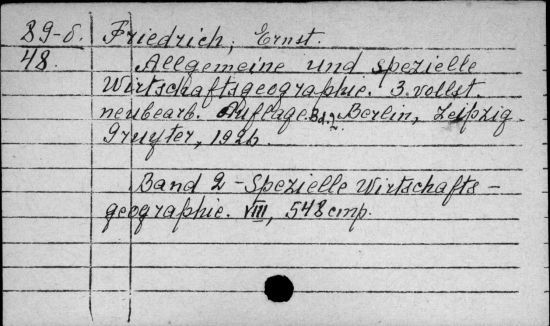 89-б. Friedrich, Ernst.
48. Allgemeine und spezielle
Wirtschaftsgeographie. 3. vollst.
neubearb. Auflage. Bd. 2. Berlin, Leipzig
Gruyter, 1926
Band 2 - Spezielle Wirtschafts-
geographie. VIII, 548 стр.